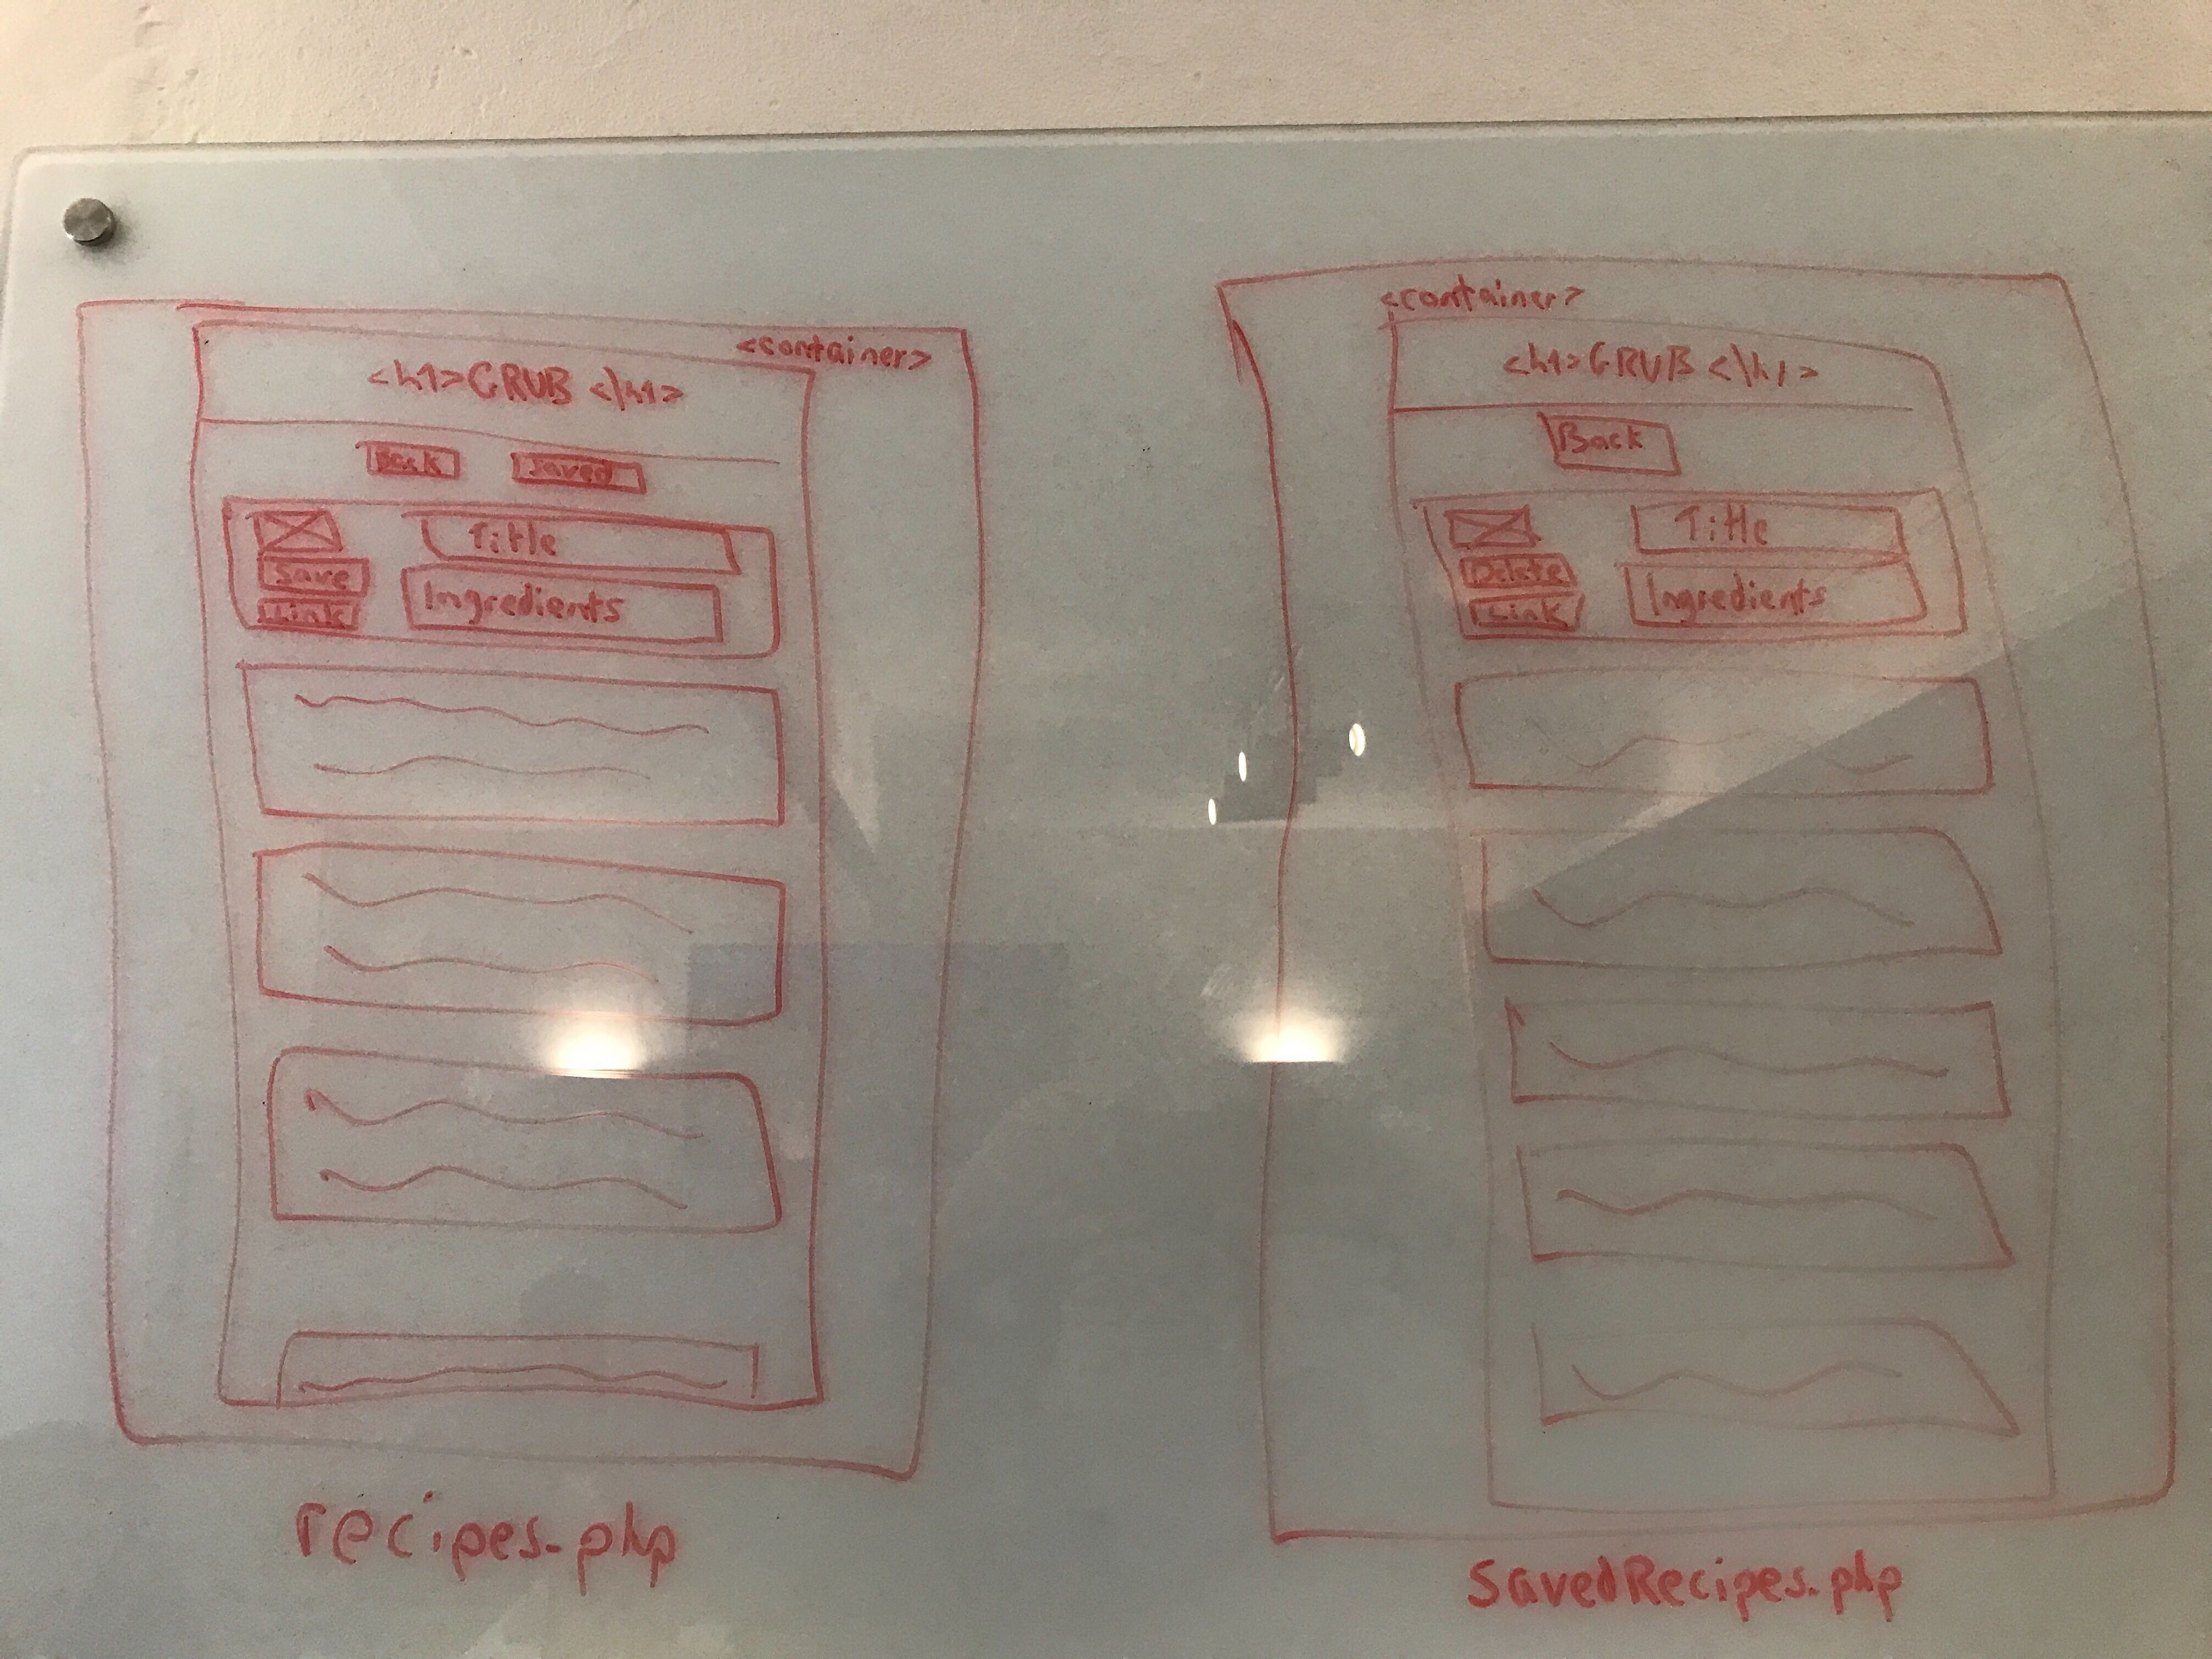 <container>
<h1>GRUB <\h1>
Back
Saved
Title
Save
Ingredients
Link
recipes.php
<container>
<h1>GRUB <\h1>
Back
Title
Delete
Ingredients
Link
SavedRecipes.php